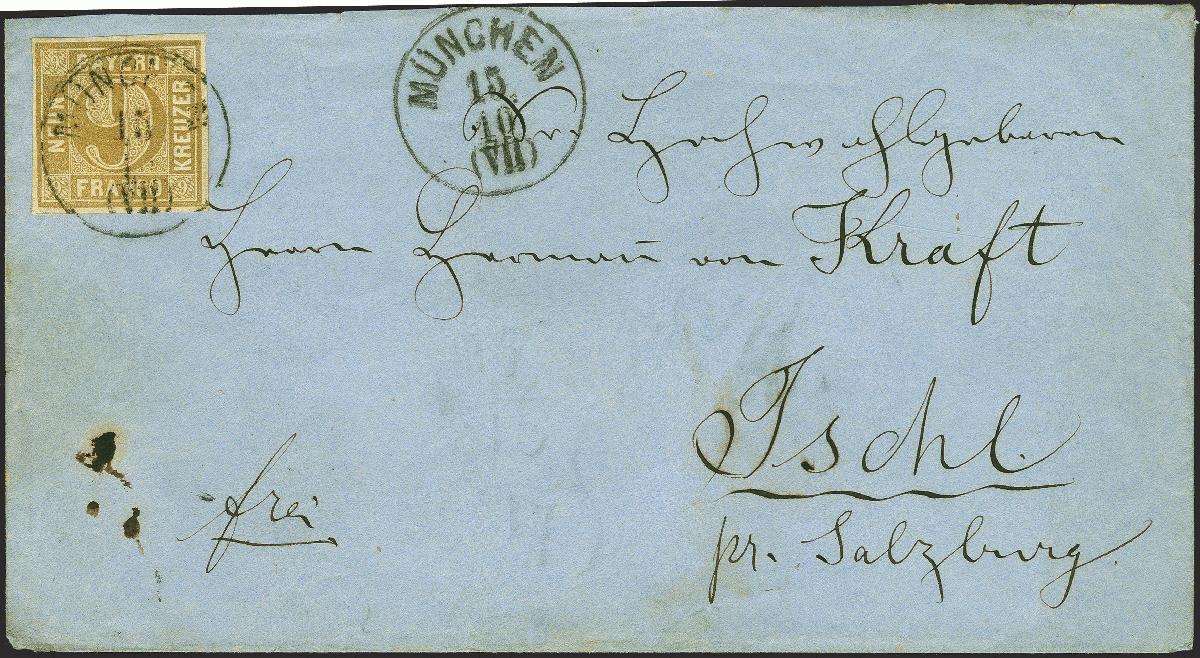 BAYERN
NEUN
9
KREUZER
FRANCO
MÜNCHEN
15
(VII)
MÜNCHEN
15
10
(VII)
Hochwohlgeboren
Herrn Herman̄ von Kraft
Ischl
pr. Salzburg
frei